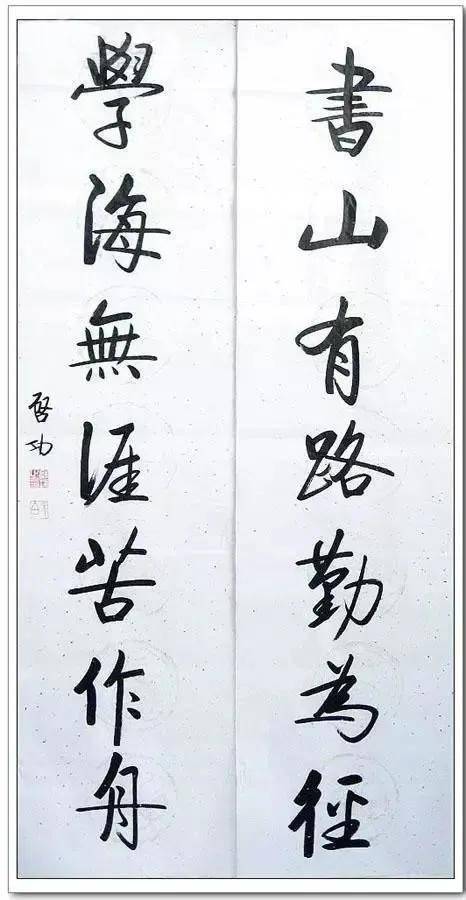 書山有路勤為徑
學海無涯苦作舟
啓功